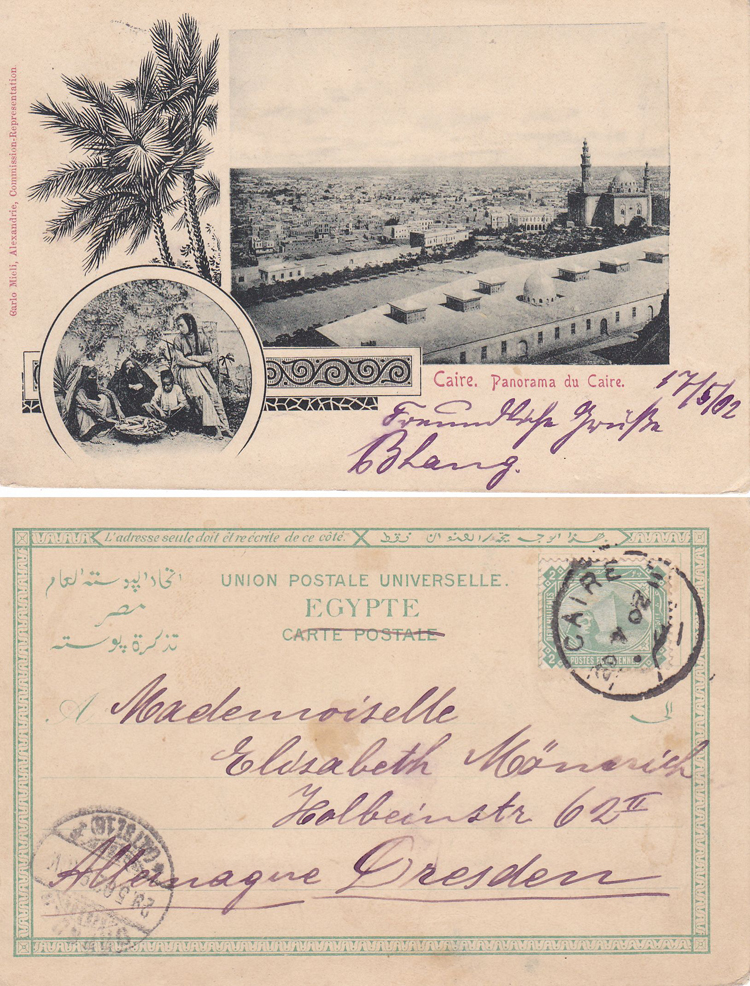 Carlo Mieli, Alexandrie, Commission-Representation.
Caire. Panorama du Caire.
17/5/02
Freundliche Grüße
BLang.
L'adresse seule doit être écrite de ce côté.
هذا الوجه مختص بالعنوان فقط
اتحاد البوسته العام
مصر
تذكرة بوسته
UNION POSTALE UNIVERSELLE.
EGYPTE
CARTE POSTALE
2 2
POSTES EGYPTIENNES
CAIRE
02
A
الى
Mademoiselle
Elisabeth Mönnrich
Holbeinstr 62 II
Allemagne Dresden
29.5.02
V